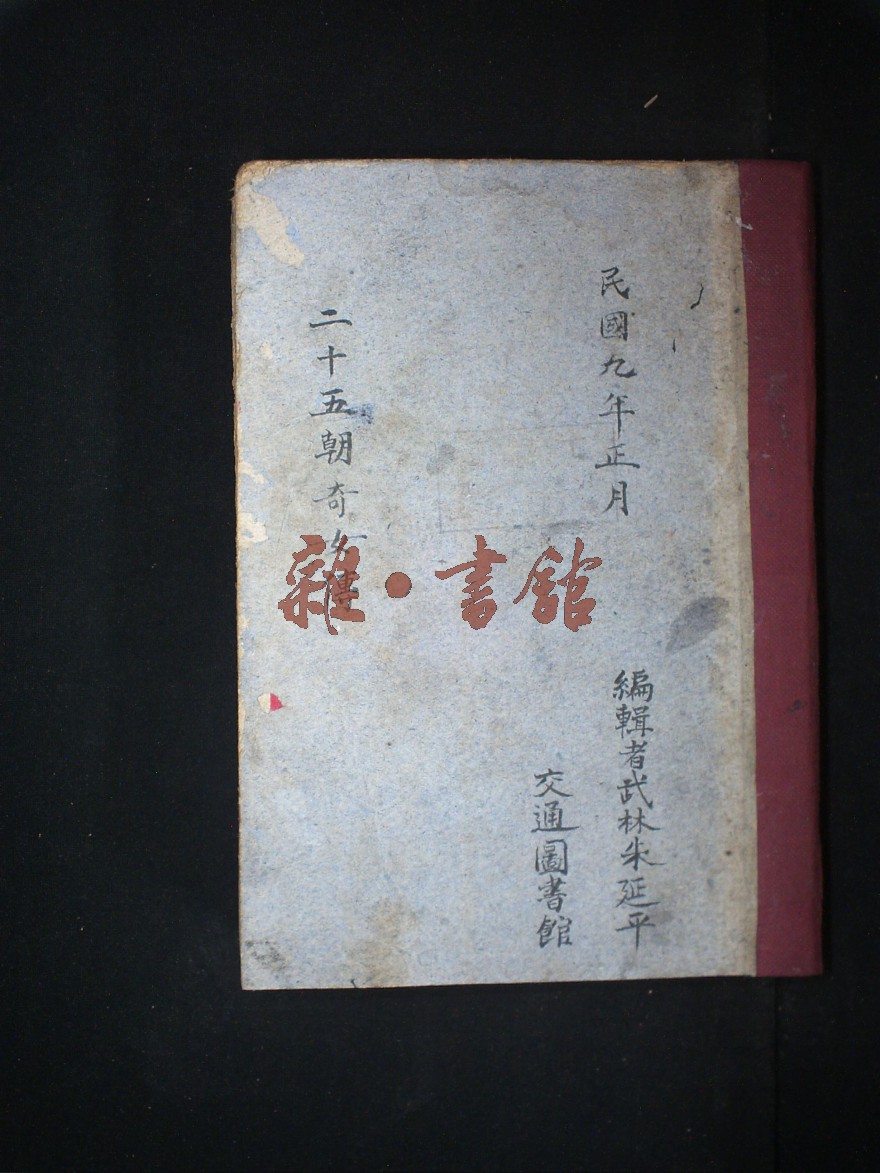 民國九年正月
編輯者武林朱延平
交通圖書館
二十五朝奇女
雜·書館